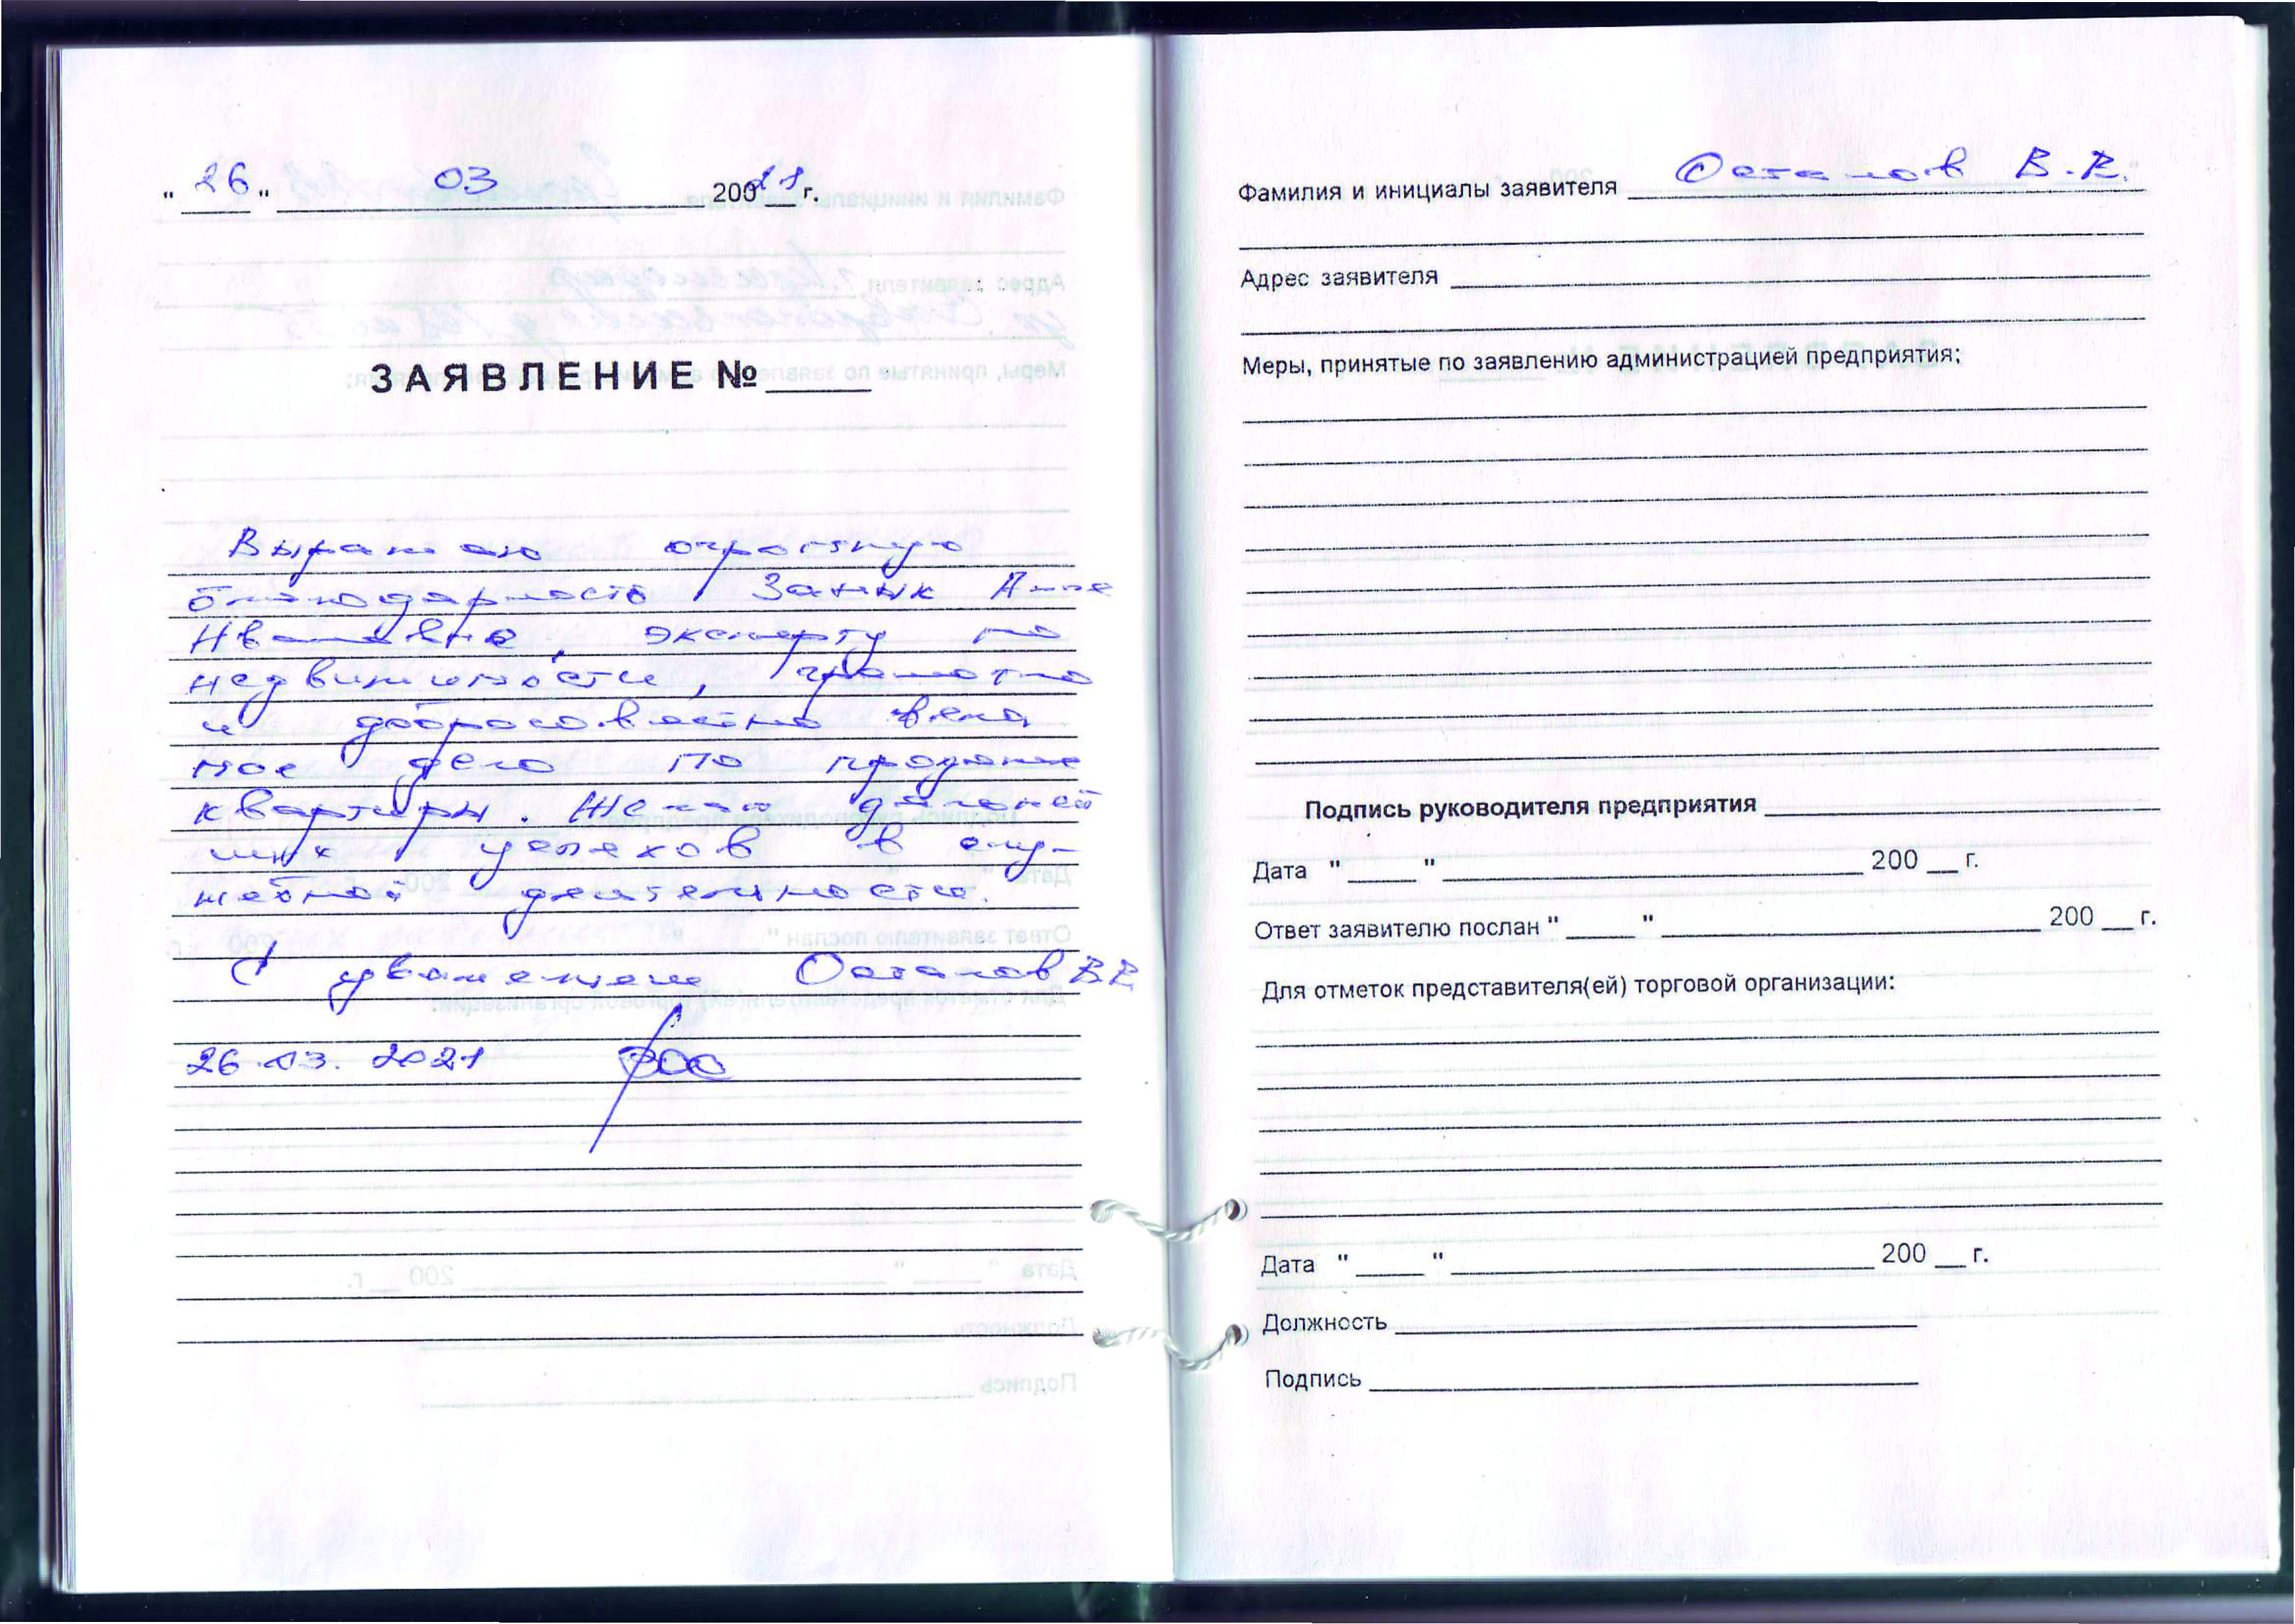 " 26 " 03 20021 г.
ЗАЯВЛЕНИЕ № ____
Выражаю огромную
благодарность Заный Анне
Ивановне, эксперту по
недвижимости, грамотно
и добросовестно вела
мое дело по продаже
квартиры. Желаю дальней
ших успехов в слу-
жебной деятельности.
С уважением Осталов В.В.
26.03.2021
Фамилия и инициалы заявителя Осталов В.В.
Адрес заявителя
Меры, принятые по заявлению администрацией предприятия:
Подпись руководителя предприятия
Дата " ____ " ____ 200 __ г.
Ответ заявителю послан " ____ " ____ 200 __ г.
Для отметок представителя(ей) торговой организации:
Дата " ____ " ____ 200 __ г.
Должность
Подпись